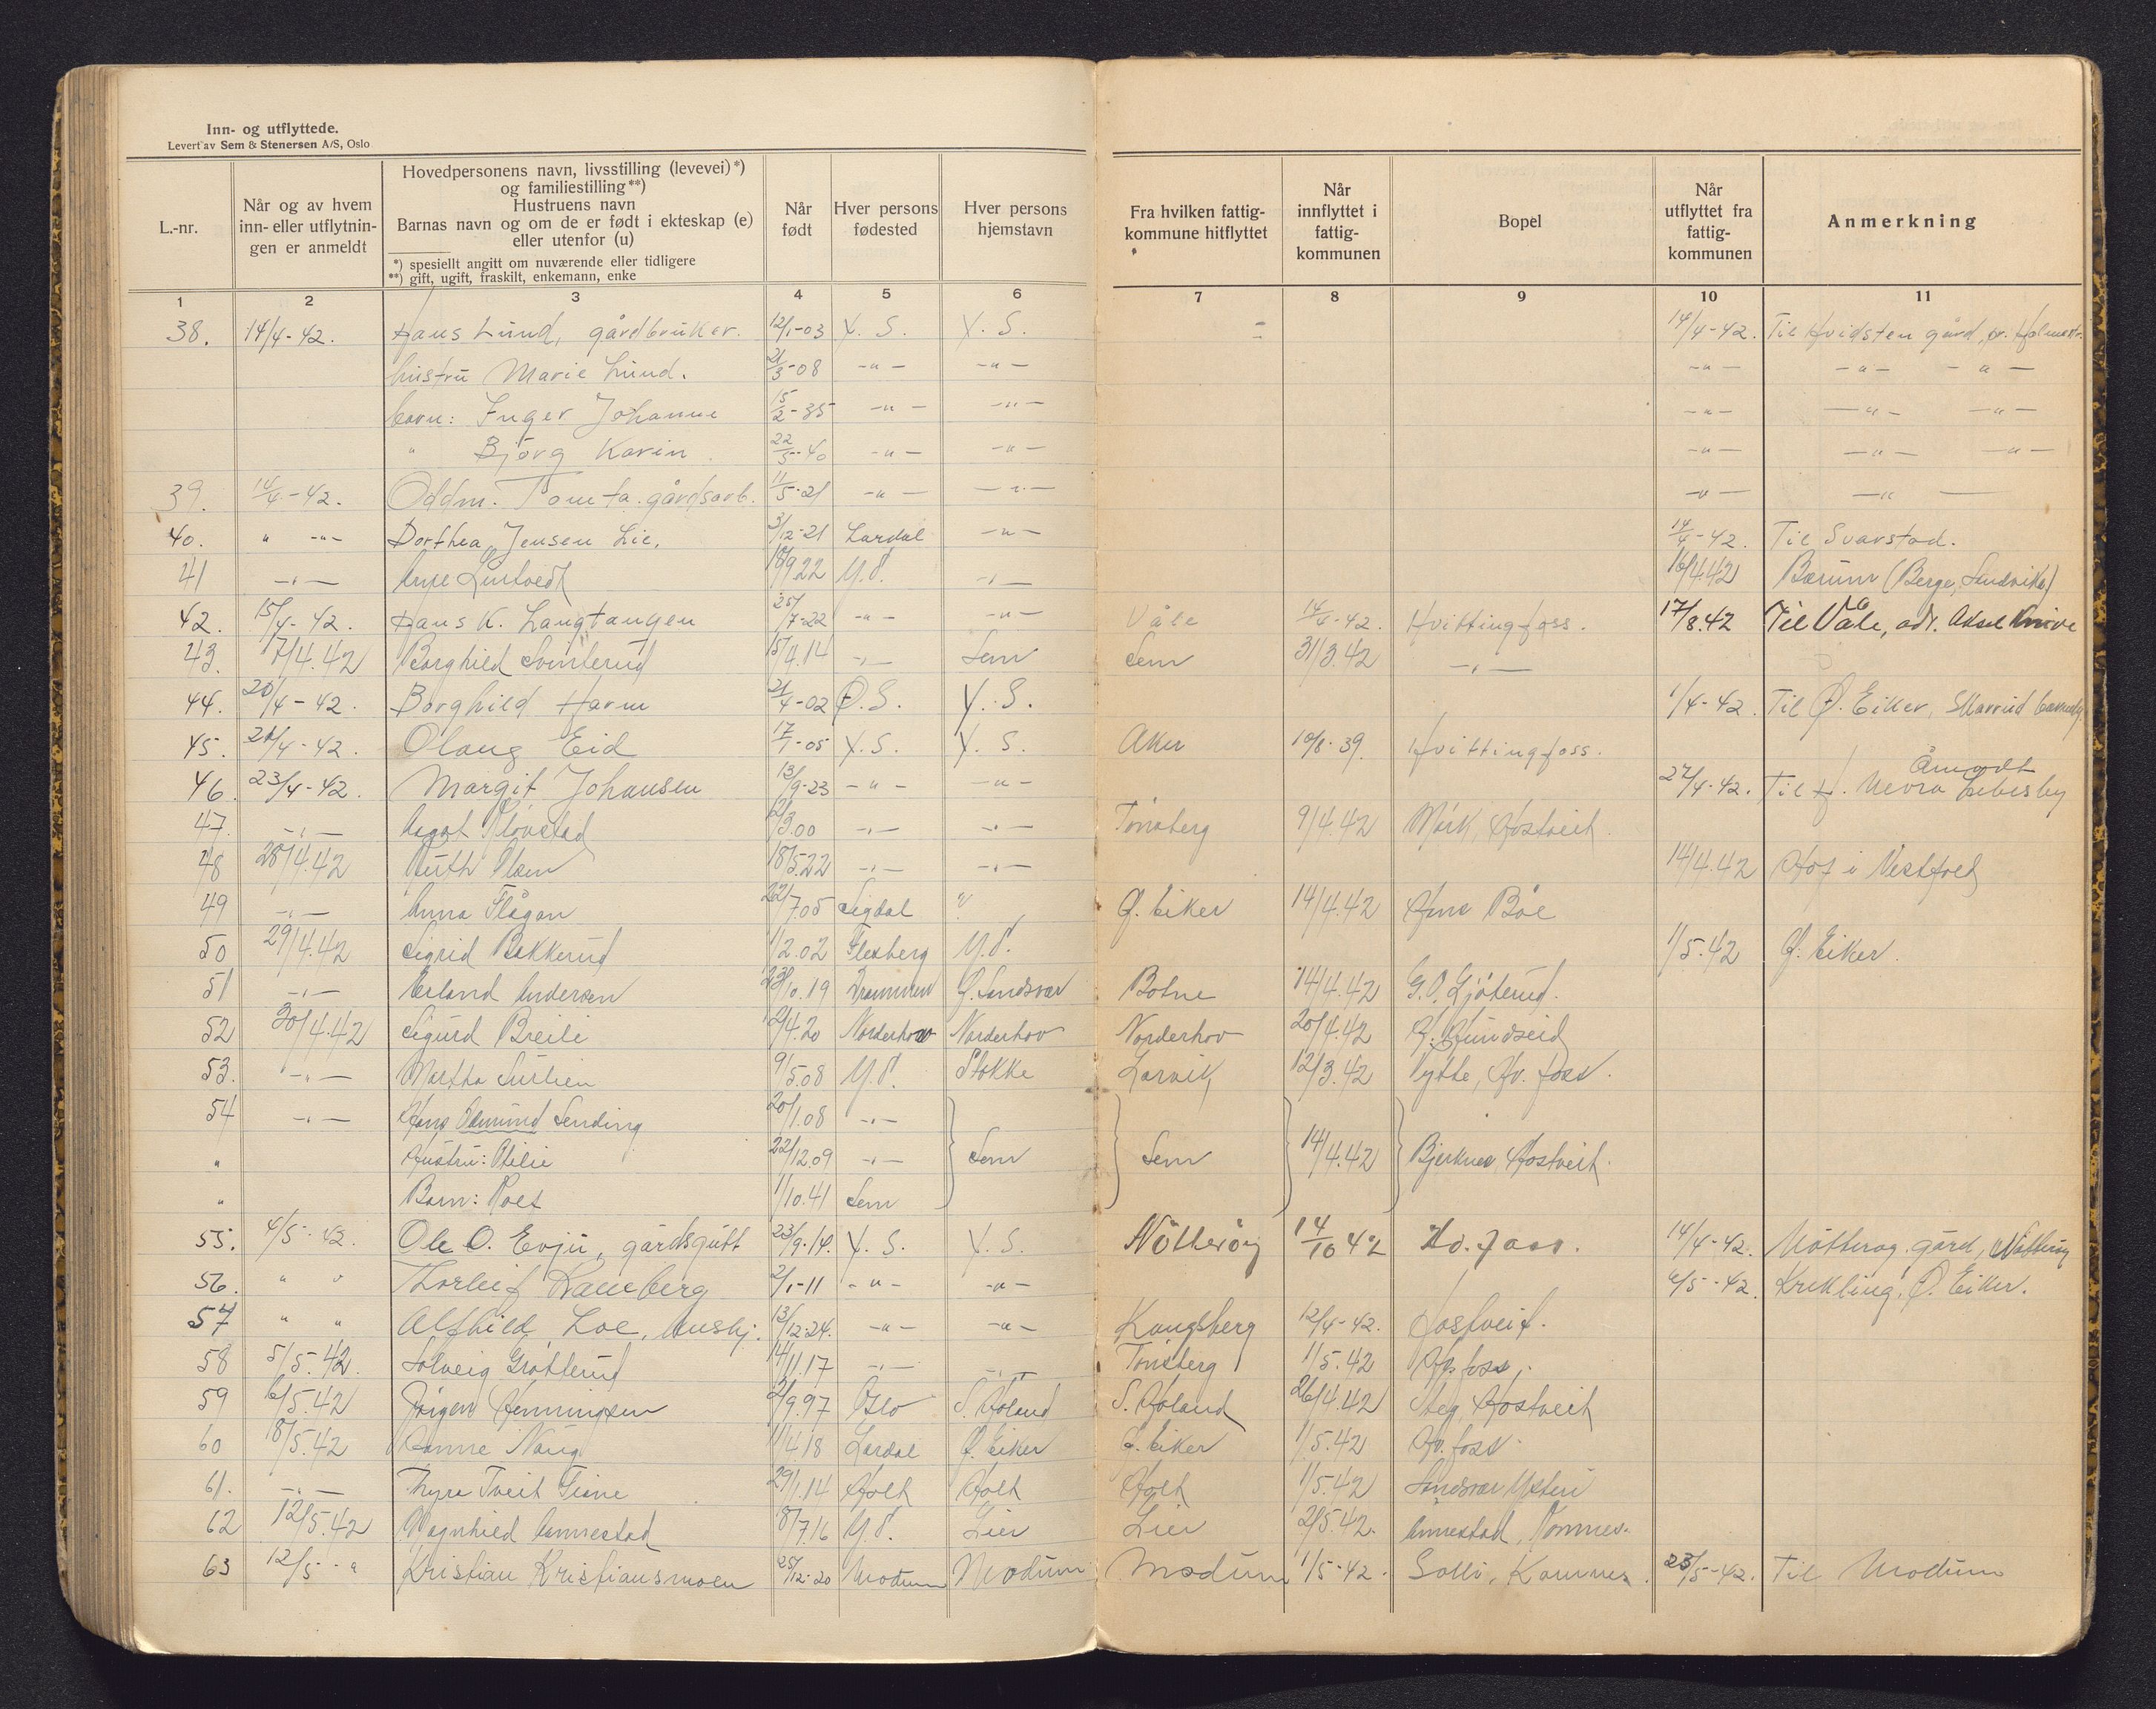 Inn- og utflyttede.
Levert av Sem & Stenersen A/S, Oslo
L.-nr.
Når og av hvem inn- eller utflytnin-gen er anmeldt
Hovedpersonens navn, livsstilling (levevei)*)
og familiestilling**)
Hustruens navn
Barnas navn og om de er født i ekteskap (e)
eller utenfor (u)
*) spesiellt angitt om nuværende eller tidligere
**) gift, ugift, fraskilt, enkemann, enke
Når født
Hver persons fødested
Hver persons hjemstavn
Fra hvilken fattig-kommune hitflyttet
Når innflyttet i fattig-kommunen
Bopel
Når utflyttet fra fattig-kommunen
Anmerkning
1 2 3 4 5 6 7 8 9 10 11
38. 14/4-42. Hans Lund, gårdbruker. 12/1-03 Y. S. Y. S. = 14/4-42. Til Hvidsten gård, pr. Holmestr.
hustru Marie Lund. 21/3-08 -"- -"- -"- -"- -"-
barn: Inger Johanne 15/2-35 -"- -"- -"- -"- -"-
" Bjørg Karin. 22/5-40 -"- -"- -"- -"- -"-
39. 14/4-42. Oddm. Tomta. gårdsarb. 11/5-21 -"- -"- -"- -"-
40. " -"- Dorthea Jensen Lie. 3/12-21 Lardal -"- 14/4-42. Til Svarstad.
41 -"- 18/9.22 Y.S. -"- 16/4.42 Bærum (Berge, Sandvika)
42. 15/4-42. Hans K. Langtangen 25/7-22 -"- -"- Våle 14/4-42. Hvittingfoss. 17/8.42 Til Våle, adr. Aksel
43. 17/4.42 Borghild 15/4.14 -"- Sem Sem 31/3.42 -"-
44. 20/4-42. Borghild Harm 21/4-02 Ø.S. Y.S. 1/4-42. Til Ø. Eiker,
45. 21/4-42. Olaug Eid 17/1-05 Y.S. Y.S. Aker 10/8-39. Hvittingfoss.
46. 23/4-42. Margit Johansen 13/9-23 -"- -"- 27/4-42. Til Åmodt
47. -"- 2/3.00 -"- -"- Tönsberg 9/4.42 Mörk, Hostveit.
48 28/4.42 Ruth Olsen 18/5.22 -"- -"- 14/4.42 Hof i Vestfold
49 -"- Anna Flågan 22/7.05 Sigdal " Ø. Eiker 14/4.42 Böe
50 29/4.42 Sigrid Bakkerud 1/2.02 Flesberg Y.S. 1/5.42 Ø. Eiker.
51 -"- Erland Andersen 23/10.19 Drammen Ø. Sandsvær Botne 14/4.42 G. O. Gjöterud.
52 30/4.42 Sigurd Breili 2/4.20 Norderhov Norderhov Norderhov 20/4.42
53. -"- Martha 9/5.08 Y.S. Stokke Larvik 12/3.42 Hv. foss.
54 -"- Hans Edmund Sending 20/1.08 -"-
" Hustru: Otilie 22/12.09 -"- Sem Sem 14/4.42 Bjerknes Hostveit.
" Barn: Roel 1/10.41 Sem
55. 4/5-42. Ole O. Evju, gårdsgutt 23/9-14. Y. S. Y. S. Nötteröy 14/10 42 Hv. foss. 14/4-42. Nötteröy gård, Nötteröy
56. " " Thorleif Raneberg 2/1-11 -"- -"- 4/5-42. Krekling, Ø. Eiker.
57 " " Alfhild Loe, hushj. 13/12-24. -"- -"- Kongsberg 12/4-42. Hostveit.
58 5/5.42. Solveig Grötterud 14/11.17 -"- -"- Tönsberg 1/5.42 Hv. foss.
59 6/5.42 Jörgen Henningsen 2/9.97 Oslo S. Höland S. Höland 26/4.42 Steg, Hostveit
60 18/5.42 Hanne Naug 1/4.18 Lardal Ø. Eiker Ø. Eiker 1/5.42 Hv. foss.
61. -"- Thyra Tveit 29/1.14 Holt Holt Holt 1/5.42 Sandsvær Ysteri
62 12/5.42 Ragnhild Annestad 8/7.16 Y.S. Lier Lier 2/5.42. Annestad, Komnes.
63 12/5-" Kristian Kristiansmoen 25/12-20 Modum Modum Modum 1/5-42. Solli, Komnes. 23/5-42. Til Modum